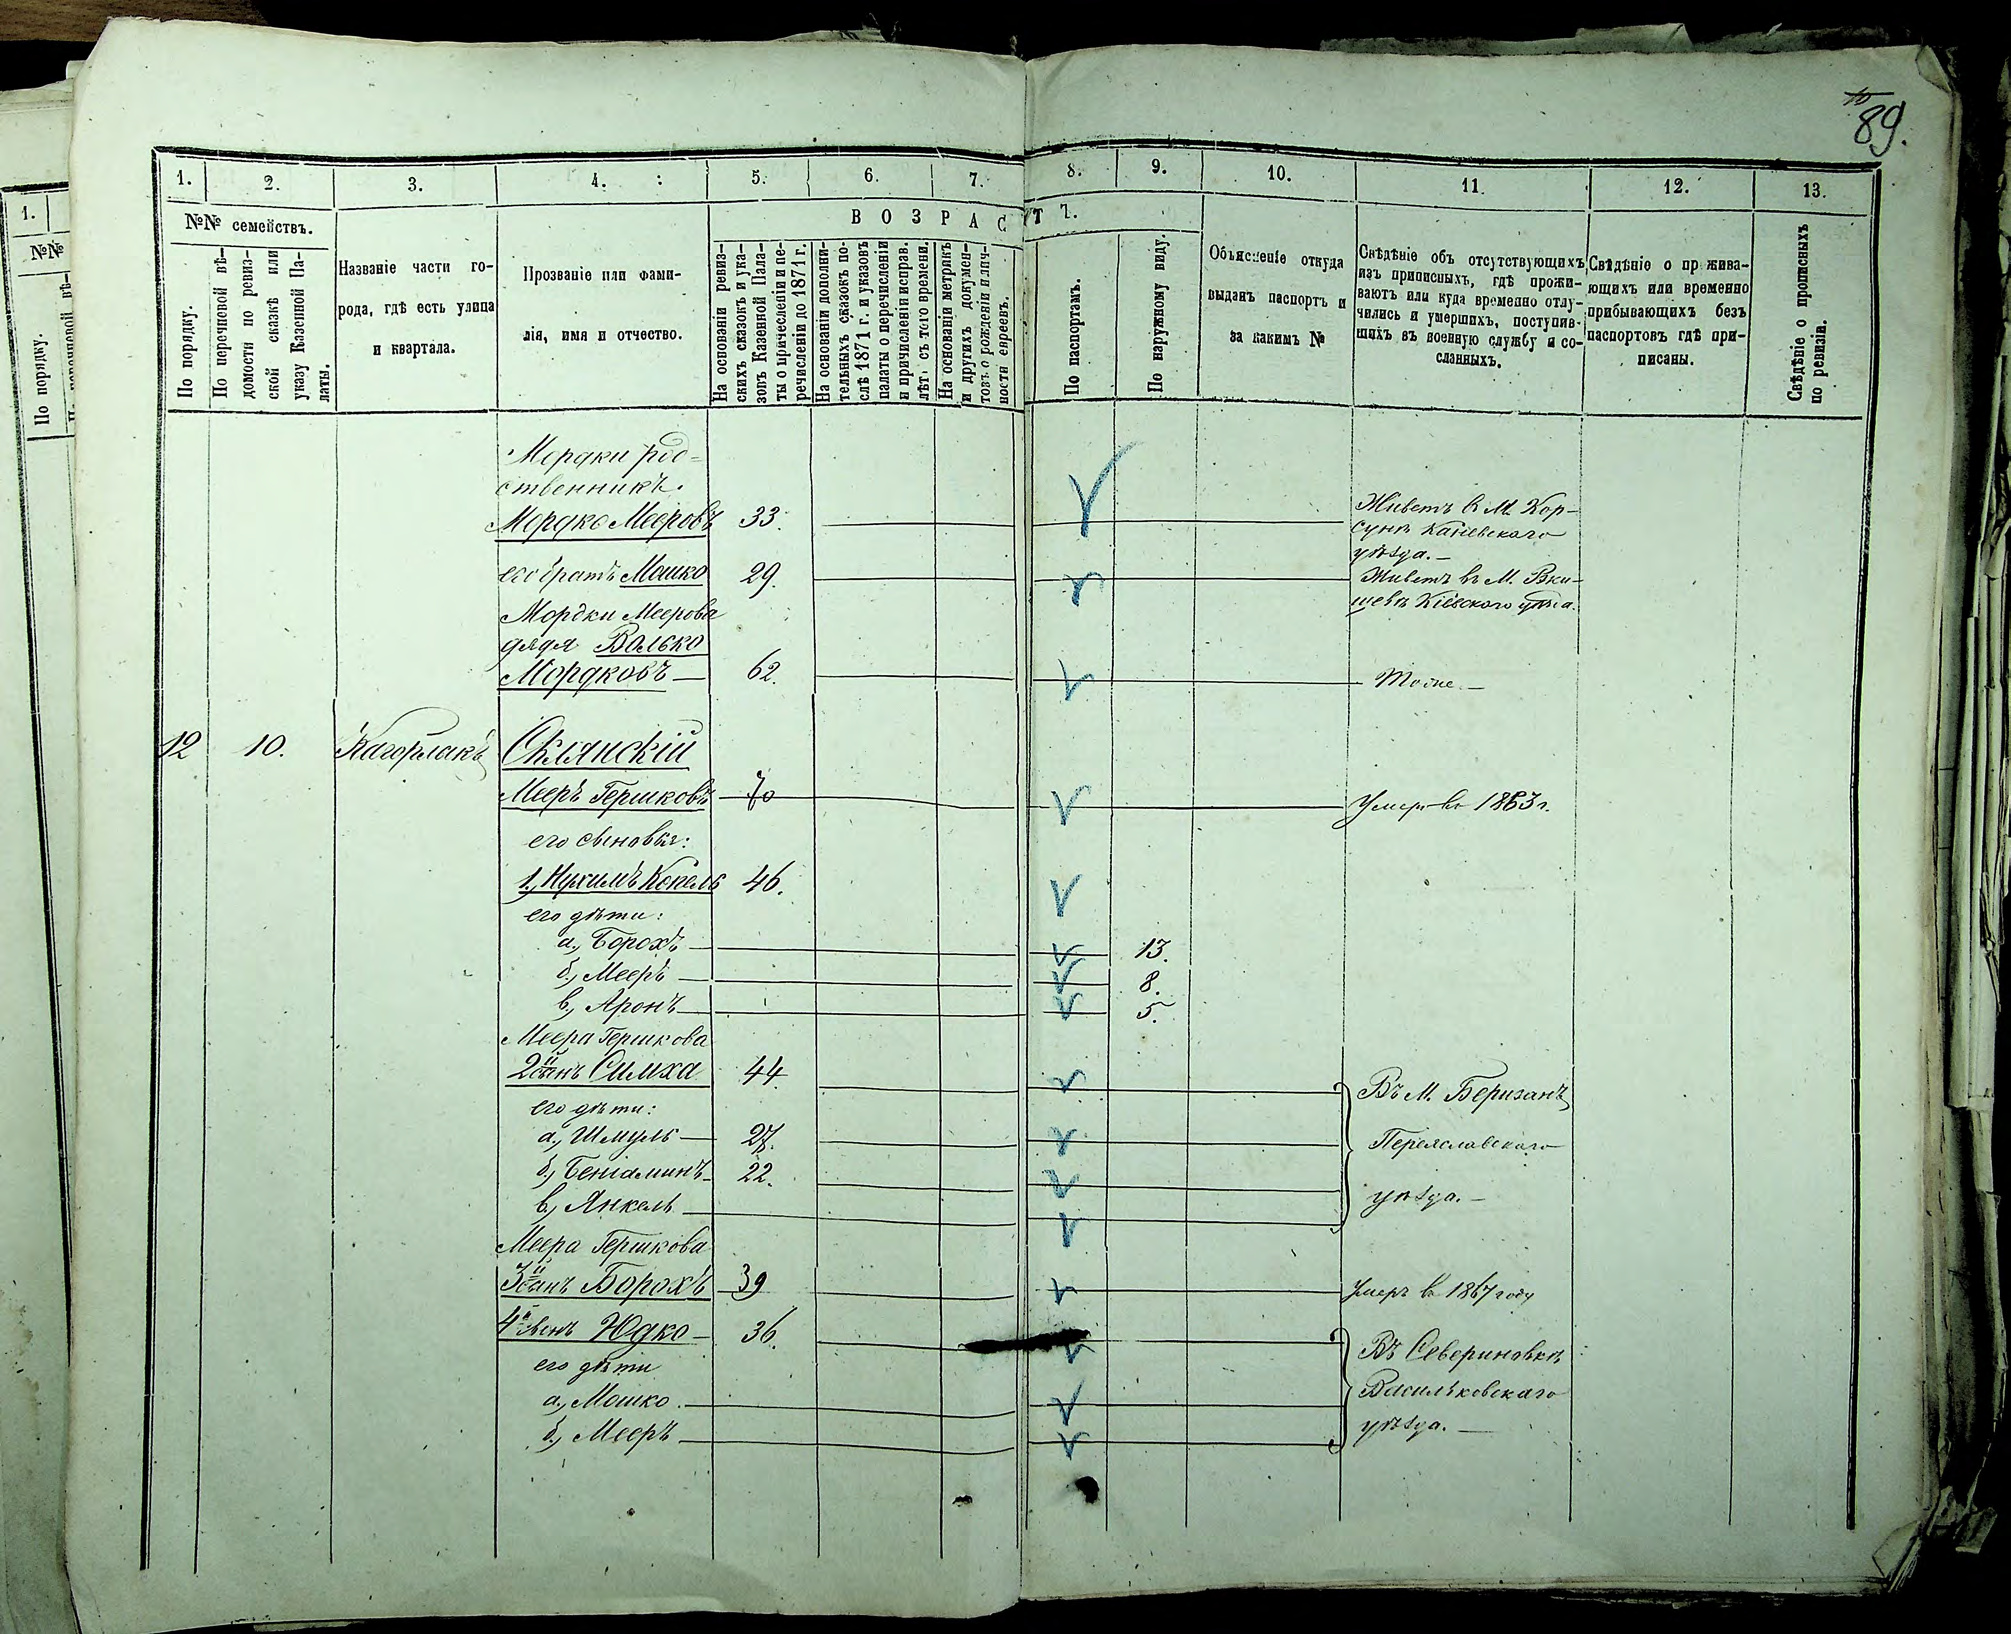 10
89.
1.
№№
По порядку.
1.
2.
3.
4.
5.
6.
7.
8.
9.
10.
11.
12.
13.
№№ семействъ.
По порядку.
По перечневой вѣ-
домости по ревиз-
ской сказкѣ или
указу Казенной Па-
латы.
Названіе части го-
рода, гдѣ есть улица
и квартала.
Прозваніе или фами-
лія, имя и отчество.
ВОЗРАСТЪ.
На основаніи ревиз-
скихъ сказокъ и ука-
зовъ Казенной Пала-
ты о причисленіи и пе-
речисленіи до 1871 г.
На основаніи дополни-
тельныхъ сказокъ по-
слѣ 1871 г. и указовъ
палаты о перечисленіи
и причисленіи исправ.
лѣт. съ того времени.
На основаніи метрикъ
и другихъ докумен-
товъ о рожденіи и лич-
ности евреевъ.
По паспортамъ.
По наружному виду.
Объясненіе откуда
выданъ паспортъ и
за какимъ №
Свѣдѣніе объ отсутствующихъ
изъ приписныхъ, гдѣ прожи-
ваютъ или куда временно отлу-
чились и умершихъ, поступив-
шихъ въ военную службу и со-
сланныхъ.
Свѣдѣніе о прожива-
ющихъ или временно
прибывающихъ безъ
паспортовъ гдѣ при-
писаны.
Свѣдѣніе о прописныхъ
по ревизіи.
Мордки род=
ственникъ.
Мордко Мееровъ 33. Живетъ в М. Кор-
сунѣ Каневскаго
уѣзда.—
его братъ Мошко 29. Живетъ въ М. Ржи-
щевѣ Кіевского уѣзда.
Мордки Меерова
дядя Волько
Мордковъ — 62. Тоже.—
12 10. Кагорлакъ Склянскій
Мееръ Гершковъ 70 Умеръ въ 1863 г.
его сыновья:
1, Нухимъ Копель 46.
его дѣти:
а, Борохъ 13.
б, Мееръ 8.
в, Аронъ 5.
Меера Гершкова
2й сынъ Симха 44 Въ М. Беризанѣ
его дѣти:
а, Шмуль 27. Переяславскаго
б, Беніаминъ 22.
в, Янкель уѣзда.—
Меера Гершкова
3й сынъ Борохъ 39 Умеръ в 1867 году
4й сынъ Юдко 36. Въ Севериновкѣ
его дѣти
а, Мошко. Васильковскаго
б, Мееръ уѣзда.—